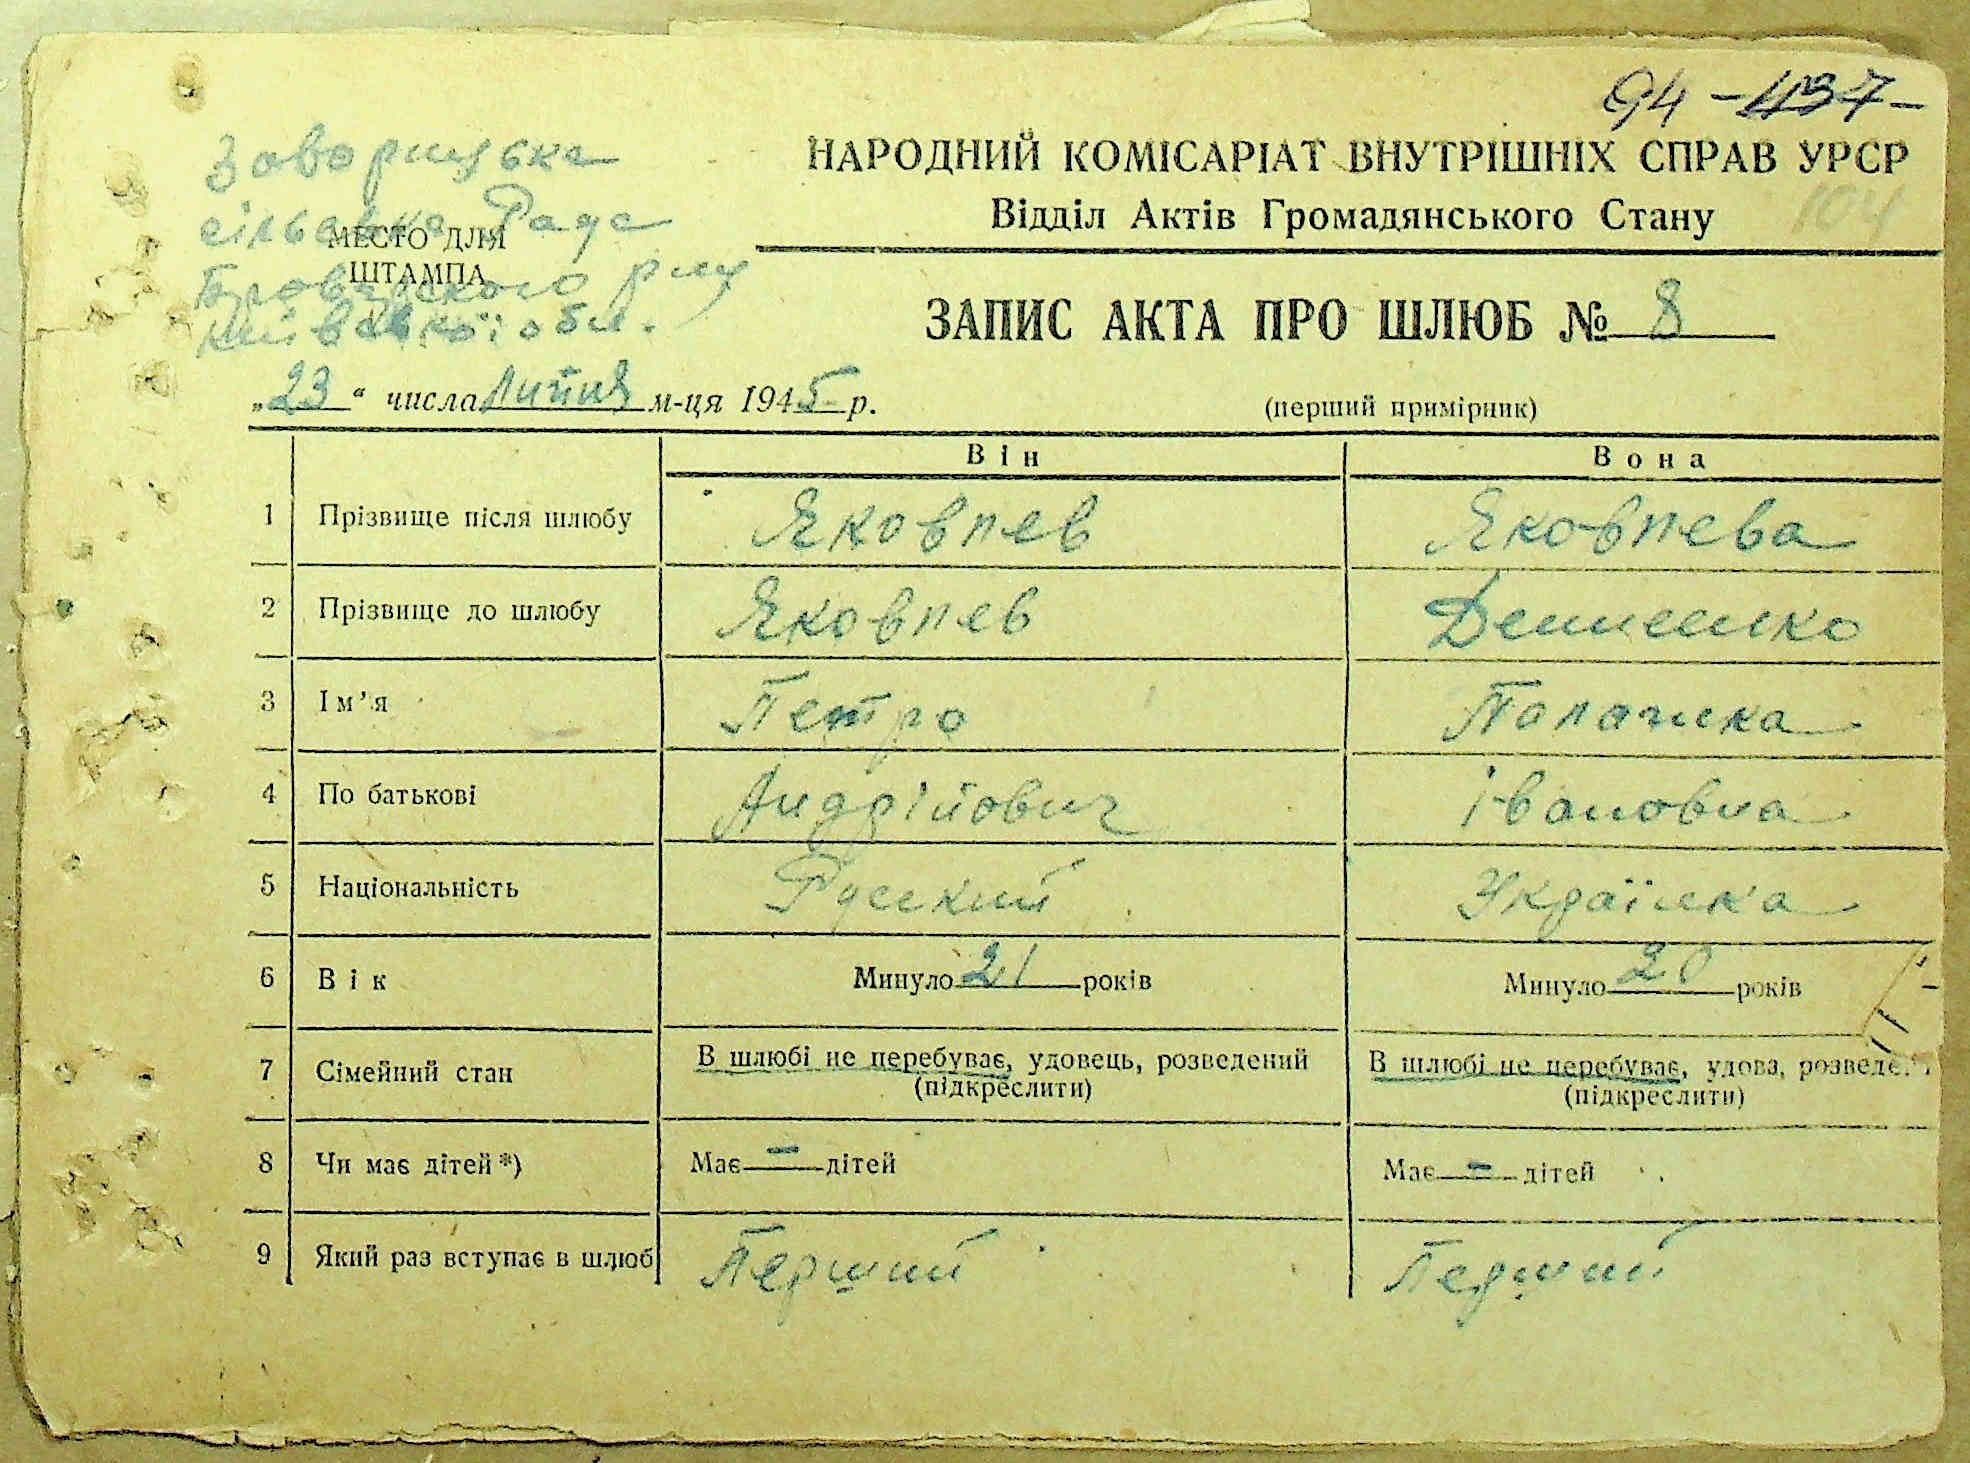 94 -437-
Заворицька
сільська Рада
Броварського р-ну
Київської обл.
МЕСТО ДЛЯ
ШТАМПА
НАРОДНИЙ КОМІСАРІАТ ВНУТРІШНІХ СПРАВ УРСР
Відділ Актів Громадянського Стану
104
ЗАПИС АКТА ПРО ШЛЮБ № 8
„23“ числа липня м-ця 1945 р.
(перший примірник)
Він Вона
1 Прізвище після шлюбу Яковлев Яковлева
2 Прізвище до шлюбу Яковлев
3 Ім’я Петро Палажка
4 По батькові Андрійович Івановна
5 Національність Руський Українка
6 Вік Минуло 21 років Минуло 20 років
7 Сімейний стан В шлюбі не перебуває, удовець, розведений В шлюбі не перебуває, удова,
(підкреслити) (підкреслити)
8 Чи має дітей *) Має — дітей Має — дітей
9 Який раз вступає в шлюб Перший Перший